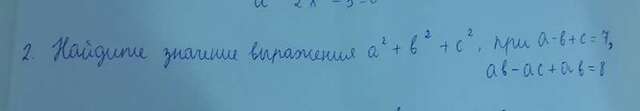 2. Найдите значние выражения a² + b² + c², при a-b+c=7,
ab-ac+ab=8